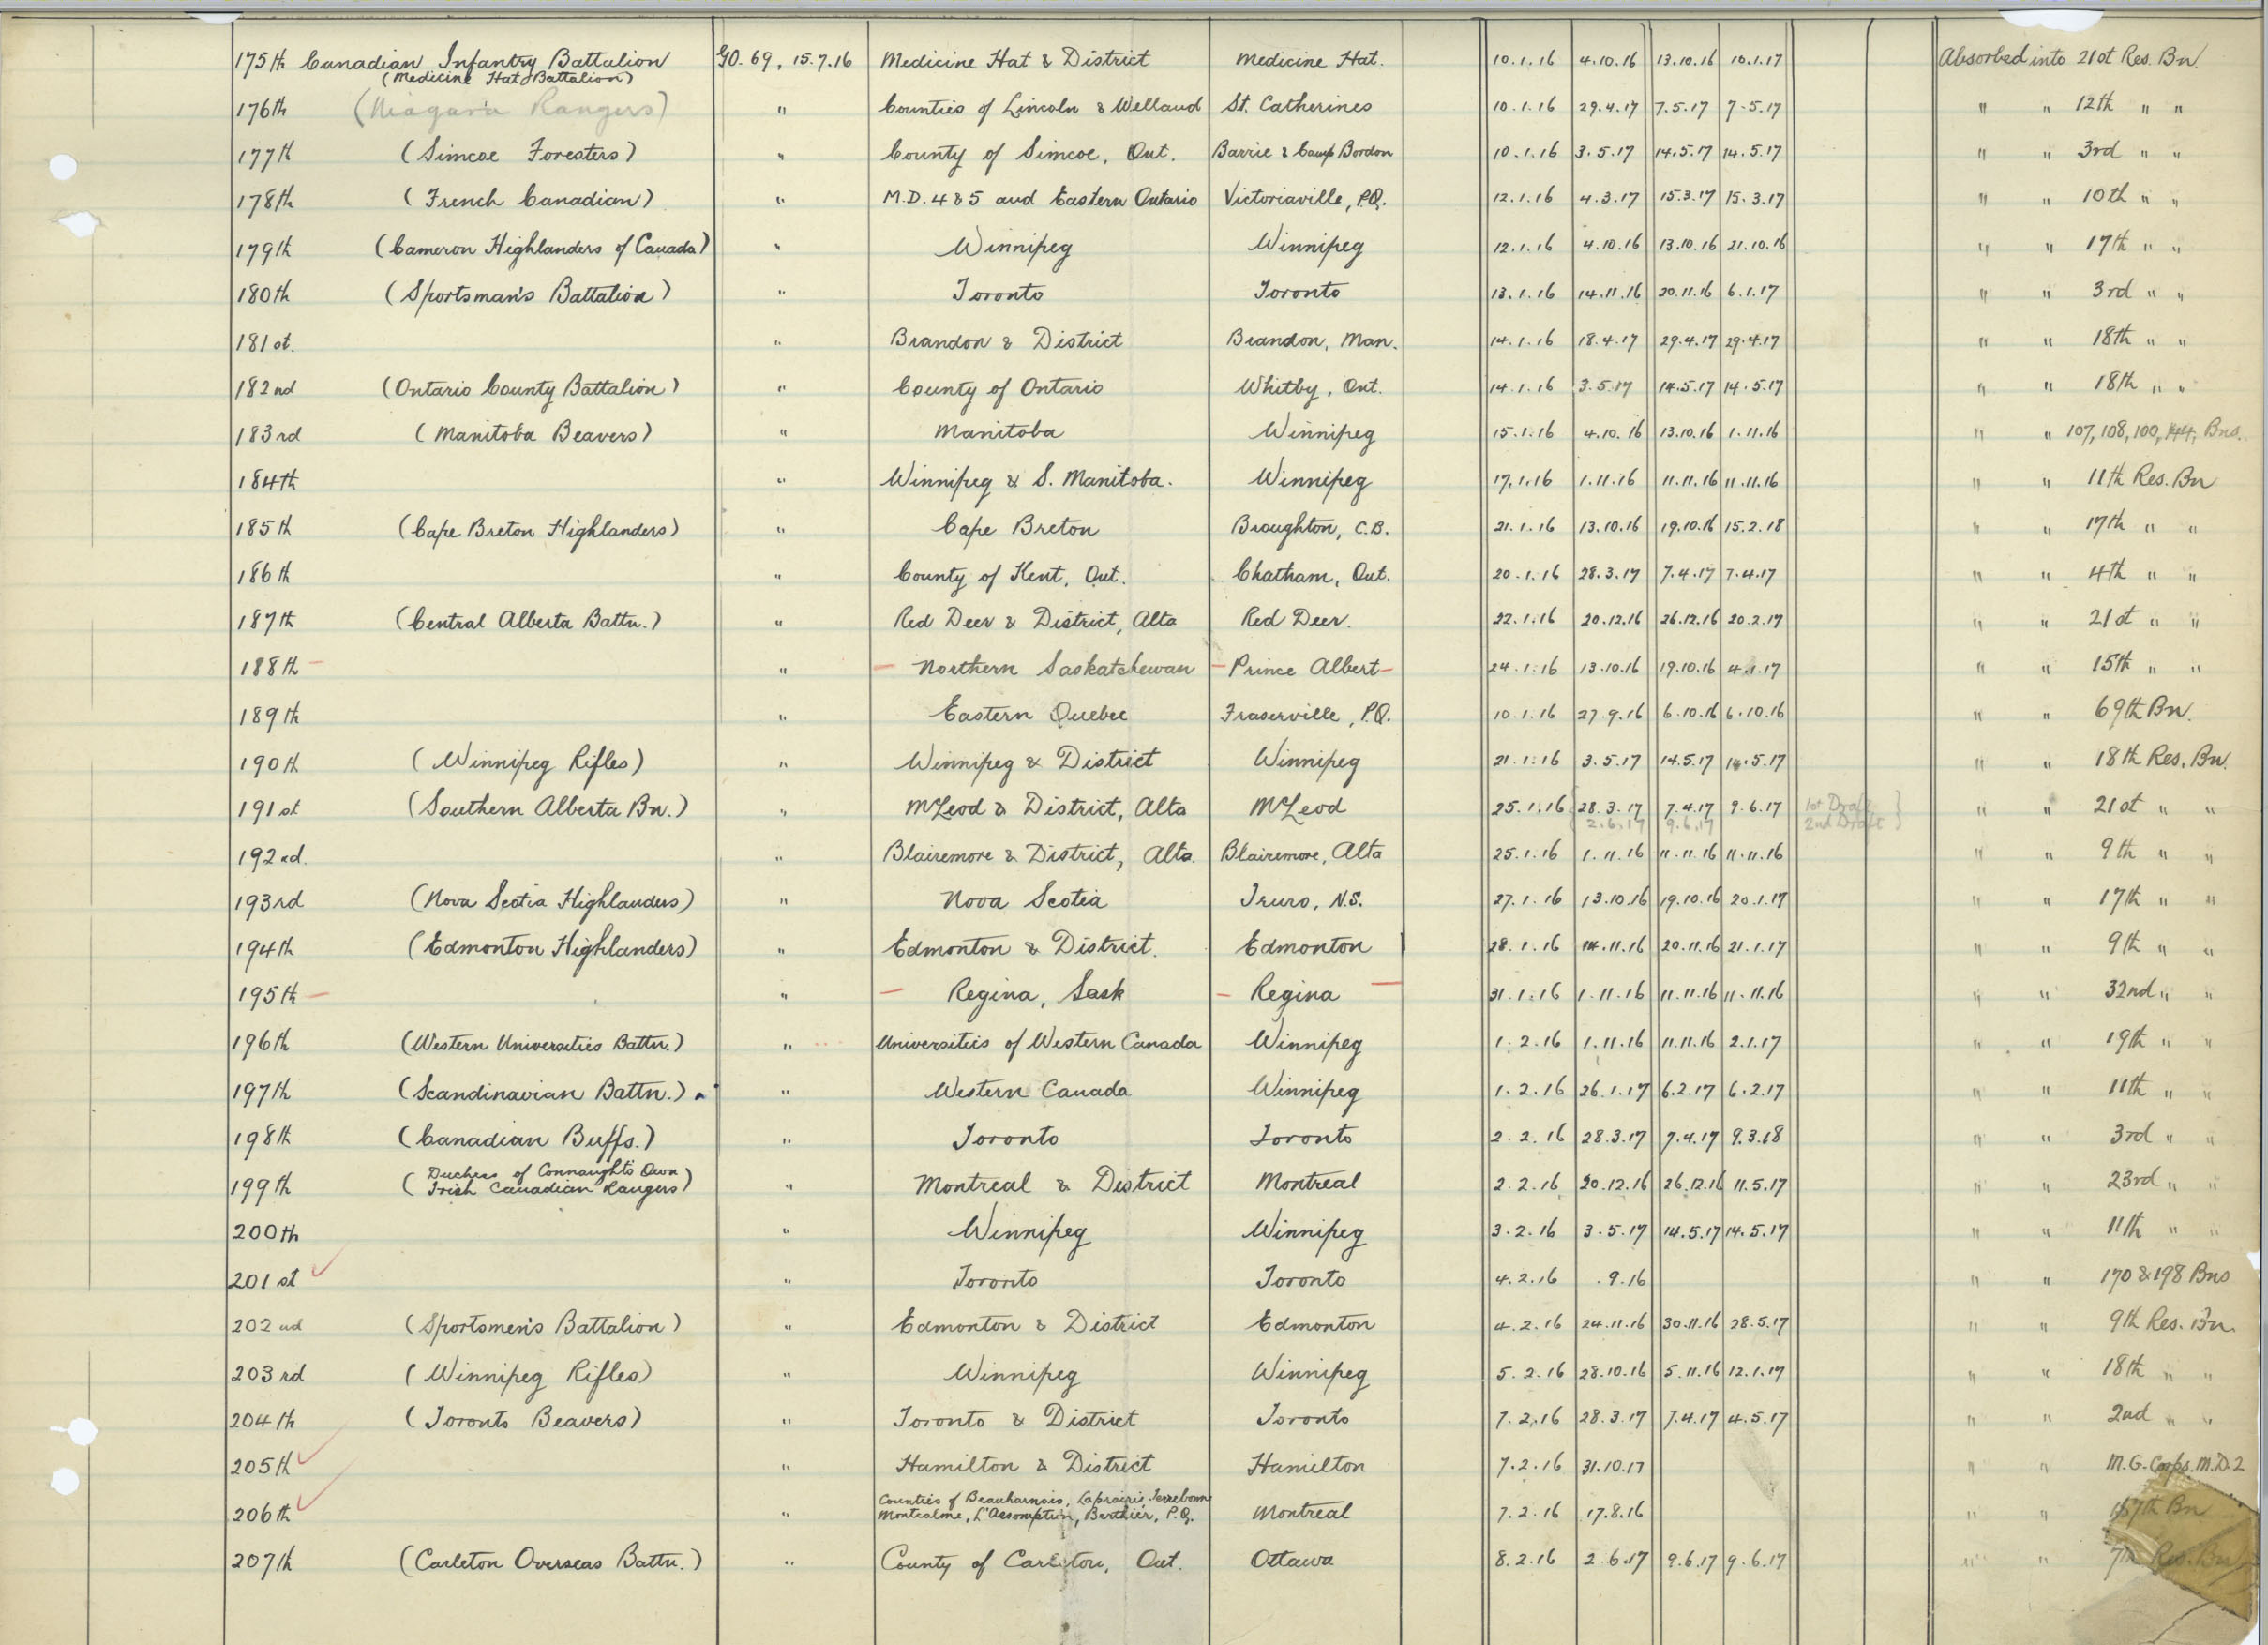 175th Canadian Infantry Battalion G.O. 69, 15.7.16 Medicine Hat & District Medicine Hat. 10.1.16 4.10.16 13.10.16 10.1.17 Absorbed into 21st Res. Bn.
(Medicine Hat Battalion)
176th (Niagara Rangers) " Counties of Lincoln & Welland St. Catherines 10.1.16 29.4.17 7.5.17 7.5.17 " " 12th " "
177th (Simcoe Foresters) " County of Simcoe, Ont. Barrie & Camp Bordon 10.1.16 3.5.17 14.5.17 14.5.17 " " 3rd " "
178th (French Canadian) " M.D. 4 & 5 and Eastern Ontario Victoriaville, P.Q. 12.1.16 4.3.17 15.3.17 15.3.17 " " 10th " "
179th (Cameron Highlanders of Canada) " Winnipeg Winnipeg 12.1.16 4.10.16 13.10.16 21.10.16 " " 17th " "
180th (Sportsman's Battalion) " Toronto Toronto 13.1.16 14.11.16 20.11.16 6.1.17 " " 3rd " "
181st. " Brandon & District Brandon, Man. 14.1.16 18.4.17 29.4.17 29.4.17 " " 18th " "
182nd (Ontario County Battalion) " County of Ontario Whitby, Ont. 14.1.16 3.5.17 14.5.17 14.5.17 " " 18th " "
183rd (Manitoba Beavers) " Manitoba Winnipeg 15.1.16 4.10.16 13.10.16 1.11.16 " " 107, 108, 100, 144, Bns.
184th " Winnipeg & S. Manitoba. Winnipeg 17.1.16 1.11.16 11.11.16 11.11.16 " " 11th Res. Bn
185th (Cape Breton Highlanders) " Cape Breton Broughton, C.B. 21.1.16 13.10.16 19.10.16 15.2.18 " " 17th " "
186th " County of Kent, Ont. Chatham, Ont. 20.1.16 28.3.17 7.4.17 7.4.17 " " 4th " "
187th (Central Alberta Battn.) " Red Deer & District, Alta Red Deer. 22.1.16 20.12.16 26.12.16 20.2.17 " " 21st " "
188th " Northern Saskatchewan Prince Albert 24.1.16 13.10.16 19.10.16 4.1.17 " " 15th " "
189th " Eastern Quebec Fraserville, P.Q. 10.1.16 27.9.16 6.10.16 6.10.16 " " 69th Bn.
190th (Winnipeg Rifles) " Winnipeg & District Winnipeg 21.1.16 3.5.17 14.5.17 14.5.17 " " 18th Res. Bn.
191st (Southern Alberta Bn.) " McLeod & District, Alta McLeod 25.1.16 { 28.3.17 7.4.17 9.6.17 1st Draft } " " 21st " "
2.6.17 9.6.17 2nd Draft
192nd. " Blairemore & District, Alta. Blairemore, Alta 25.1.16 1.11.16 11.11.16 11.11.16 " " 9th " "
193rd (Nova Scotia Highlanders) " Nova Scotia Truro, N.S. 27.1.16 13.10.16 19.10.16 20.1.17 " " 17th " "
194th (Edmonton Highlanders) " Edmonton & District. Edmonton 28.1.16 14.11.16 20.11.16 21.1.17 " " 9th " "
195th " Regina, Sask Regina 31.1.16 1.11.16 11.11.16 11.11.16 " " 32nd " "
196th (Western Universities Battn.) " Universities of Western Canada Winnipeg 1.2.16 1.11.16 11.11.16 2.1.17 " " 19th " "
197th (Scandinavian Battn.) " Western Canada Winnipeg 1.2.16 26.1.17 6.2.17 6.2.17 " " 11th " "
198th (Canadian Buffs.) " Toronto Toronto 2.2.16 28.3.17 7.4.17 9.3.18 " " 3rd " "
199th (Duchess of Connaught's Own
Irish Canadian Rangers) " Montreal & District Montreal 2.2.16 20.12.16 26.12.16 11.5.17 " " 23rd " "
200th " Winnipeg Winnipeg 3.2.16 3.5.17 14.5.17 14.5.17 " " 11th " "
201st " Toronto Toronto 4.2.16 .9.16 " " 170 & 198 Bns
202nd (Sportsmen's Battalion) " Edmonton & District Edmonton 4.2.16 24.11.16 30.11.16 28.5.17 " " 9th Res. Bn.
203rd (Winnipeg Rifles) " Winnipeg Winnipeg 5.2.16 28.10.16 5.11.16 12.1.17 " " 18th " "
204th (Toronto Beavers) " Toronto & District Toronto 7.2.16 28.3.17 7.4.17 4.5.17 " " 2nd " "
205th " Hamilton & District Hamilton 7.2.16 31.10.17 " " M.G. Corps. M.D.2
206th " Counties of Beauharnois, Laprairi, Terrebonn
Montcalme, L'Assomption, Berthier, P.Q. Montreal 7.2.16 17.8.16 " " 167th Bn
207th (Carleton Overseas Battn.) " County of Carleton, Ont. Ottawa 8.2.16 2.6.17 9.6.17 9.6.17 " " 7th Res. Bn